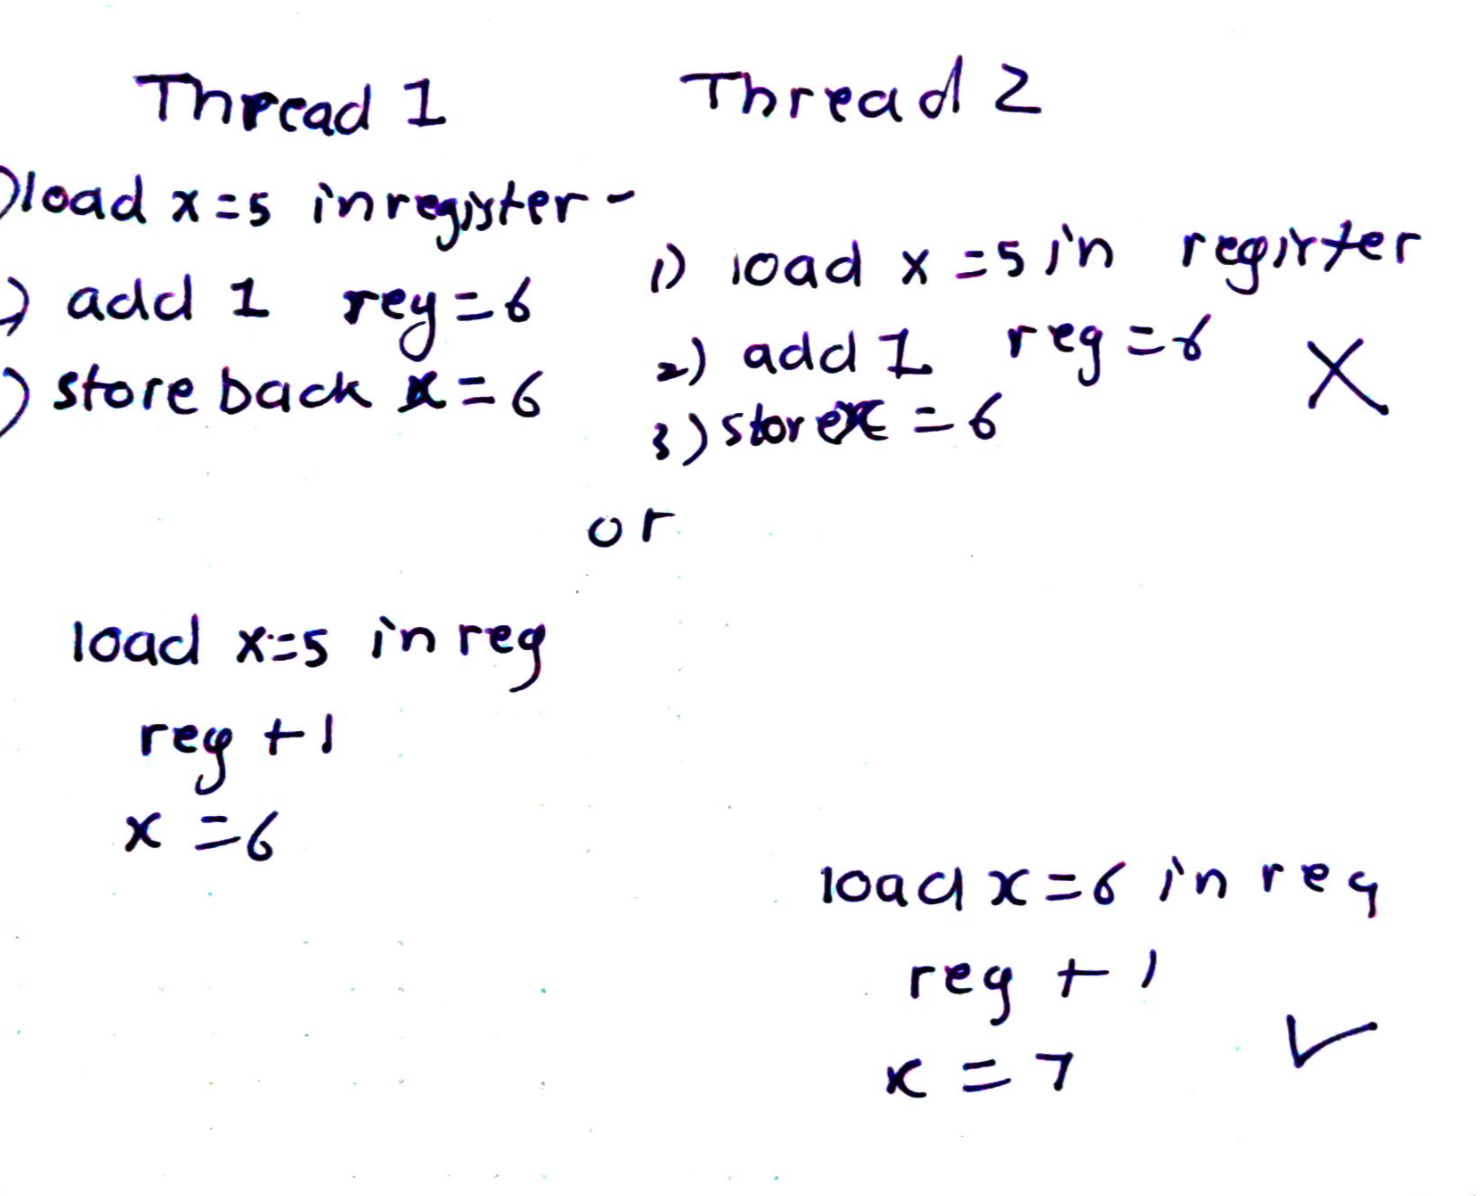 Thread 1
Thread 2
)load x=5 in register -
) add 1 reg=6
) store back x=6
1) load x =5 in register
2) add 1 reg=6
X
3) store x =6
or
load x=5 in reg
reg +1
x =6
load x=6 in reg
reg +1
x =7
✓